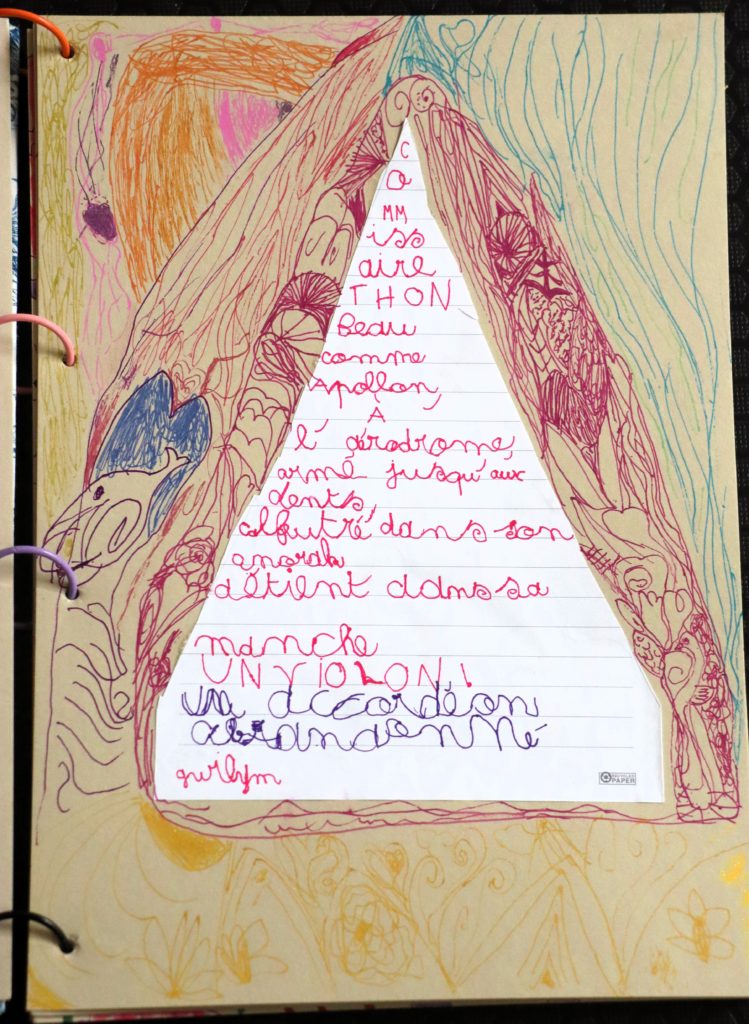 C
o
MM
iss
aire
THON
Beau
comme
Apollon,
À
l'aérodrome,
armé jusqu'aux
dents,
calfutré dans son
anorak
détient dans sa
manche
UN VIOLON!
un accordéon
abandonné
RECYCLED
PAPER